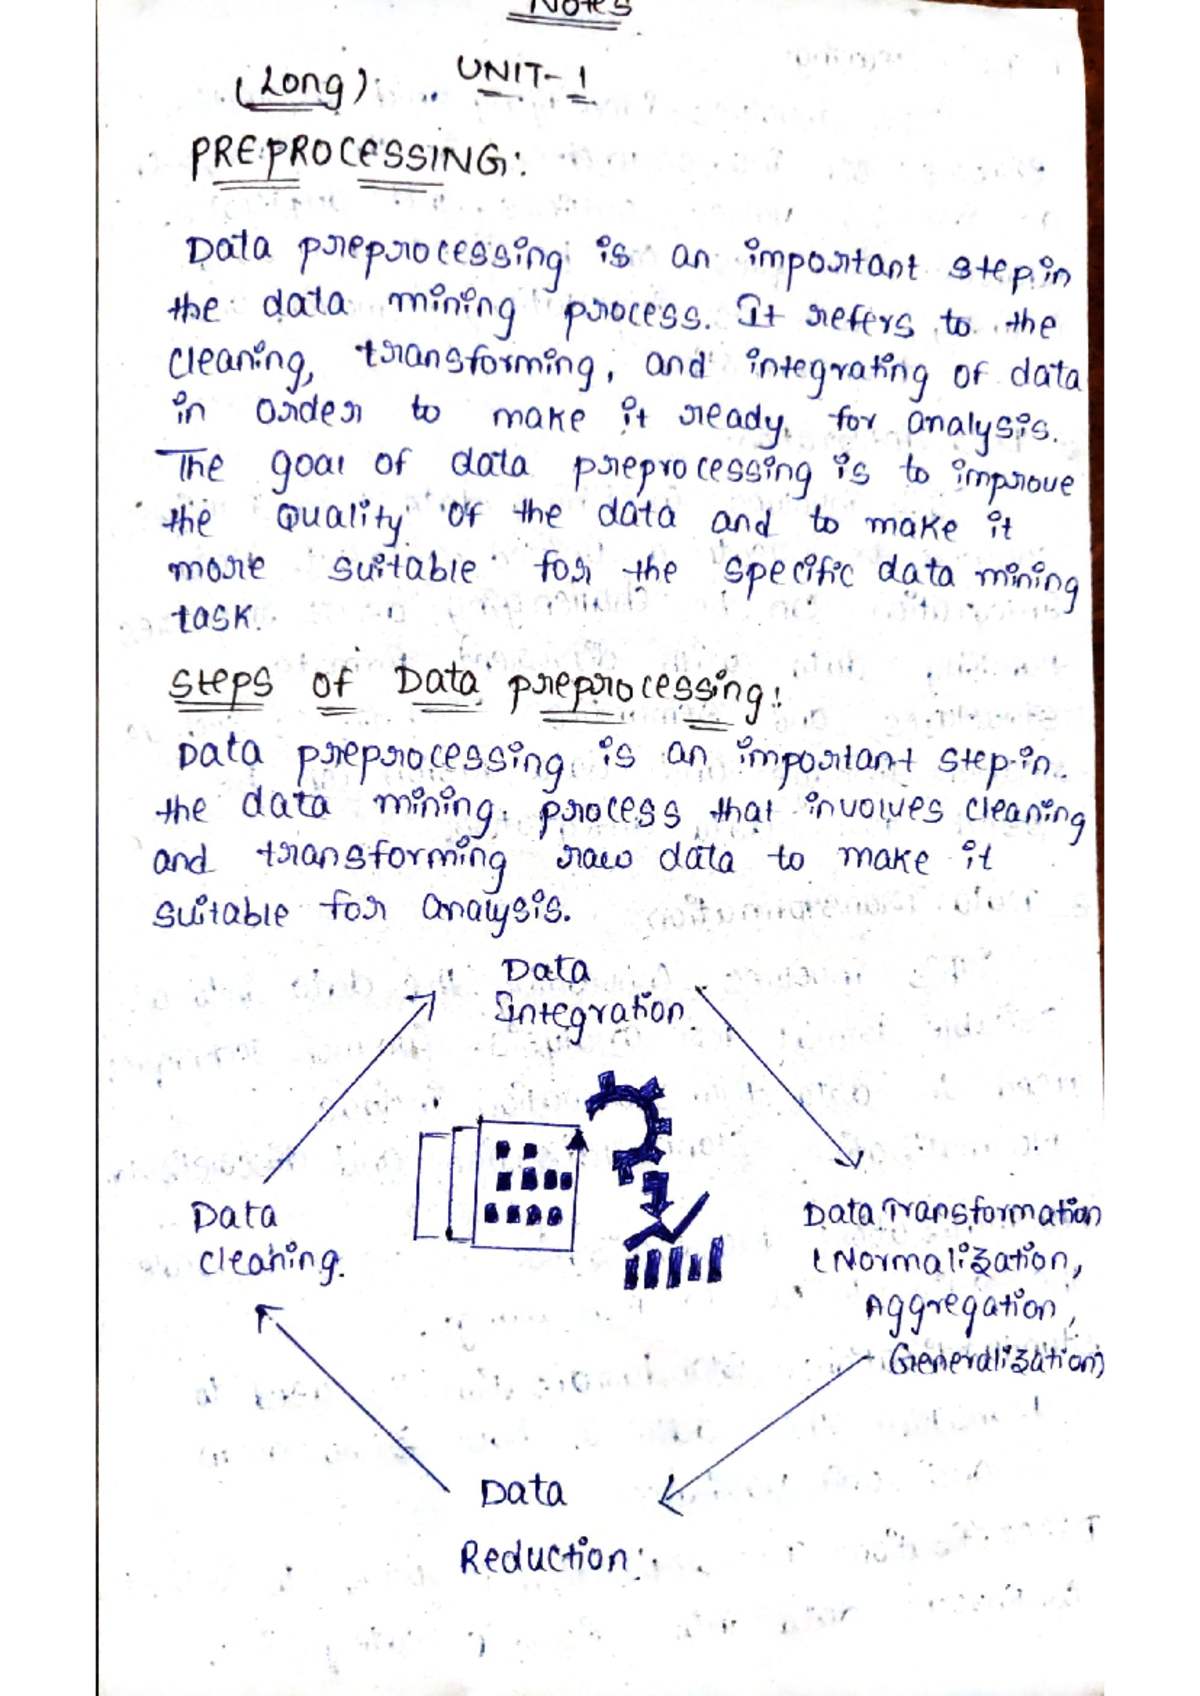 Notes
(Long) UNIT-1
PREPROCESSING:
Data preprocessing is an important step in
the data mining process. It refers to the
cleaning, transforming, and integrating of data
in order to make it ready for analysis.
The goal of data preprocessing is to improve
the quality of the data and to make it
more suitable for the specific data mining
task.
Steps of Data preprocessing:
Data preprocessing is an important step in
the data mining process that involves cleaning
and transforming raw data to make it
suitable for analysis.
Data
Integration
Data
cleaning.
Data Transformation
(Normalization,
Aggregation,
Generalization)
Data
Reduction